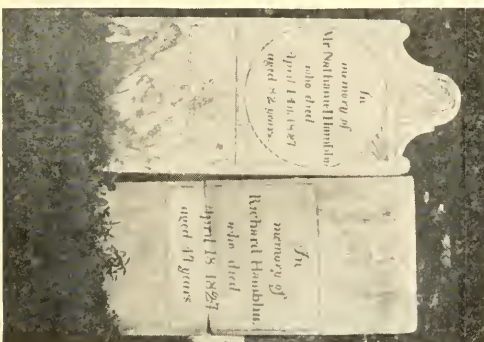 In
memory of
Mr Nathaniel Hamblin
who died
April 1827
aged 82 years
In
memory of
Richard Hamblin
who died
April 18 1827
aged 47 years